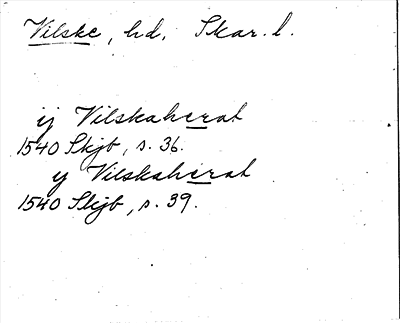 Vilske, hd, Skar. l.
ij Vilskaherat
1540 Skjb, s. 36.
y Vilskaherat
1540 Skjb, s. 39.